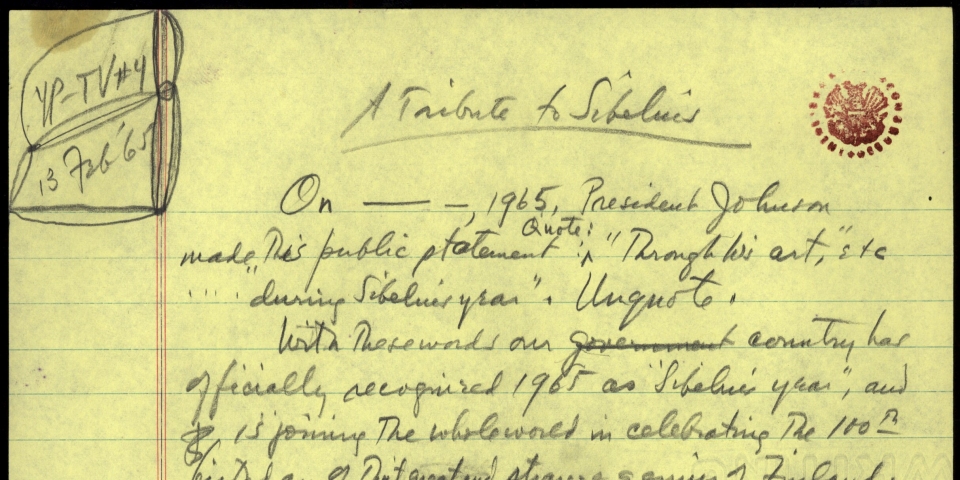 YP-TV#4
13 Feb '65
A Tribute to Sibelius
On —— –, 1965, President Johnson
Quote:
made this public statement : "Through his art," etc
.... "during Sibelius year". Unquote.
With these words our government country has
officially recognized 1965 as "Sibelius year", and
is joining the whole world in celebrating the 100th
birthday of that great and strange genius of Finland.